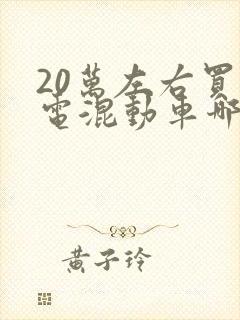 20萬左右買
電混動車哪
黃子玲